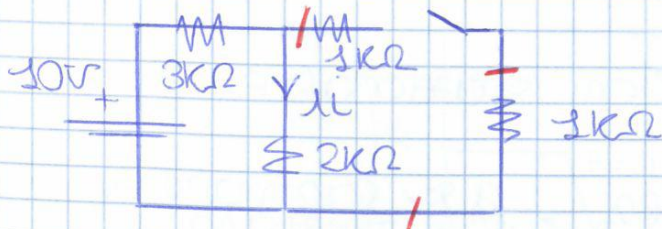 10V
+
3KΩ
1KΩ
i
2KΩ
1KΩ